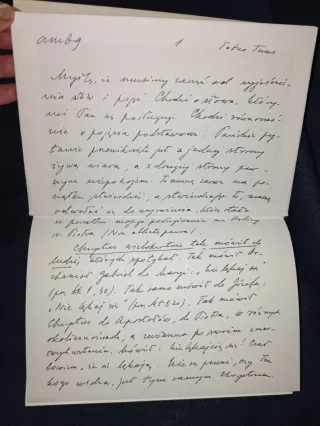 amDg 1 Totus Tuus
Myślę, że musimy zacząć od wyjaśnie-
nia słów i pojęć. Chodzi o słowa, który-
mi Pan się posługuje. Chodzi równocześ-
nie o pojęcia podstawowe. Pańskie py-
tanie przeniknięte jest z jednej strony
żywą wiarą, a z drugiej strony pew-
nym niepokojem. To muszę zaraz na po-
czątku stwierdzić, a stwierdzając to, muszę
odwołać się do wezwania, które stało
na początku mojej posługi
św. Piotra: „Nie lękajcie się!"
Chrystus wielokrotnie tak mówił do
ludzi, których spotykał. Tak mówił Ar-
chanioł Gabriel do Maryi: „Nie lękaj się"
(por. Łk 1,30). Tak samo mówił do Józefa:
„Nie lękaj się" (por. Mt 1,20). Tak mówił
Chrystus do Apostołów, do Piotra, w różnych
okolicznościach, a zwłaszcza po swoim zmar-
twychwstaniu. Mówił: „Nie lękajcie się!" Czuł
bowiem, że się lękają. Nie są pewni, czy Ten
kogo widzą, jest tym samym Chrystusem.